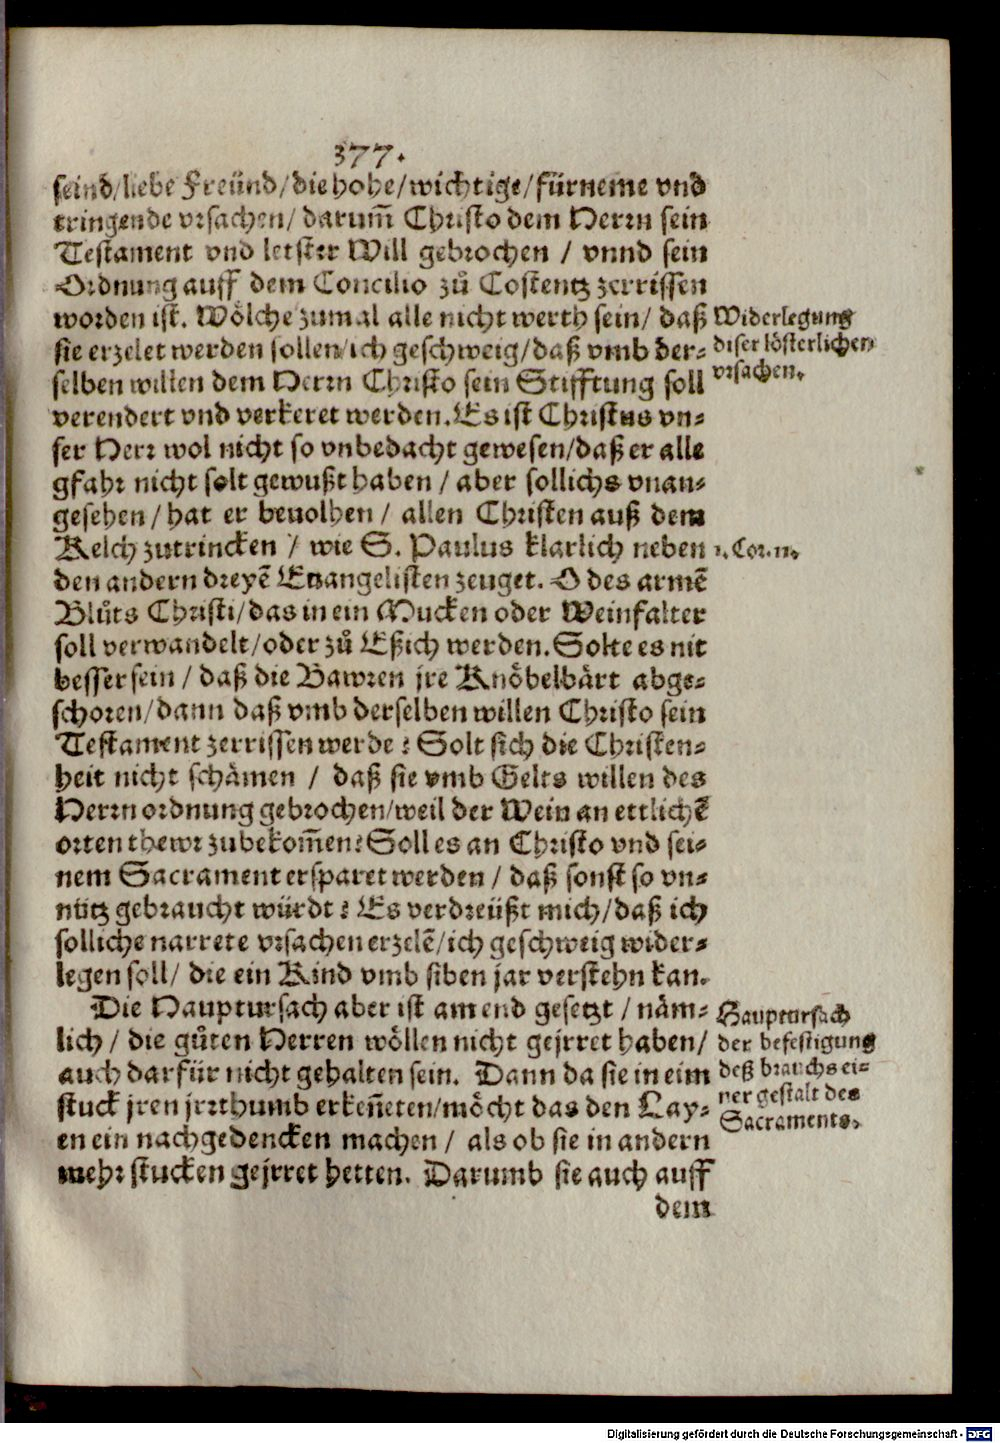 377.
seind/liebe Freünd/die hohe/wichtige/fürneme vnd
tringende vrsachen/ darum̃ Christo dem Herrn sein
Testament vnd letster Will gebrochen / vnnd sein
Ordnung auff dem Concilio zů Costentz zerrissen
worden ist. Wölche zumal alle nicht werth sein/ daß
sie erzelet werden sollen/ich geschweig/daß vmb der-
selben willen dem Herrn Christo sein Stifftung soll
verendert vnd verkeret werden. Es ist Christus vn-
ser Herr wol nicht so vnbedacht gewesen/daß er alle
gfahr nicht solt gewußt haben / aber sollichs vnan-
gesehen / hat er beuolhen / allen Christen auß dem
Kelch zutrincken / wie S. Paulus klarlich neben
den andern dreyẽ Euangelisten zeuget. O des armẽ
Blůts Christi/das in ein Mucken oder Weinfalter
soll verwandelt/oder zů Eßich werden. Solte es nit
besser sein / daß die Bawren jre Knöbelbärt abge-
schoren/dann daß vmb derselben willen Christo sein
Testament zerrissen werde? Solt sich die Christen-
heit nicht schämen / daß sie vmb Gelts willen des
Herrn ordnung gebrochen/weil der Wein an ettlichẽ
orten thewr zubekom̃en? Soll es an Christo vnd sei-
nem Sacrament ersparet werden / daß sonst so vn-
nütz gebraucht würdt? Es verdreüßt mich/daß ich
solliche narrete vrsachen erzelẽ/ich geschweig wider-
legen soll/ die ein Kind vmb siben jar verstehn kan.
Die Hauptursach aber ist am end gesetzt / näm-
lich / die gůten Herren wöllen nicht gejrret haben/
auch darfür nicht gehalten sein. Dann da sie in eim
stuck jren jrrthumb erkeñeten/möcht das den Lay-
en ein nachgedencken machen / als ob sie in andern
mehr stucken gejrret hetten. Darumb sie auch auff
dem
Widerlegung
diser lösterlichen
vrsachen.
1. Cor. 11.
Hauptursach
der befestigung
deß brauchs ei-
ner gestalt des
Sacraments.
Digitalisierung gefördert durch die Deutsche Forschungsgemeinschaft - DFG